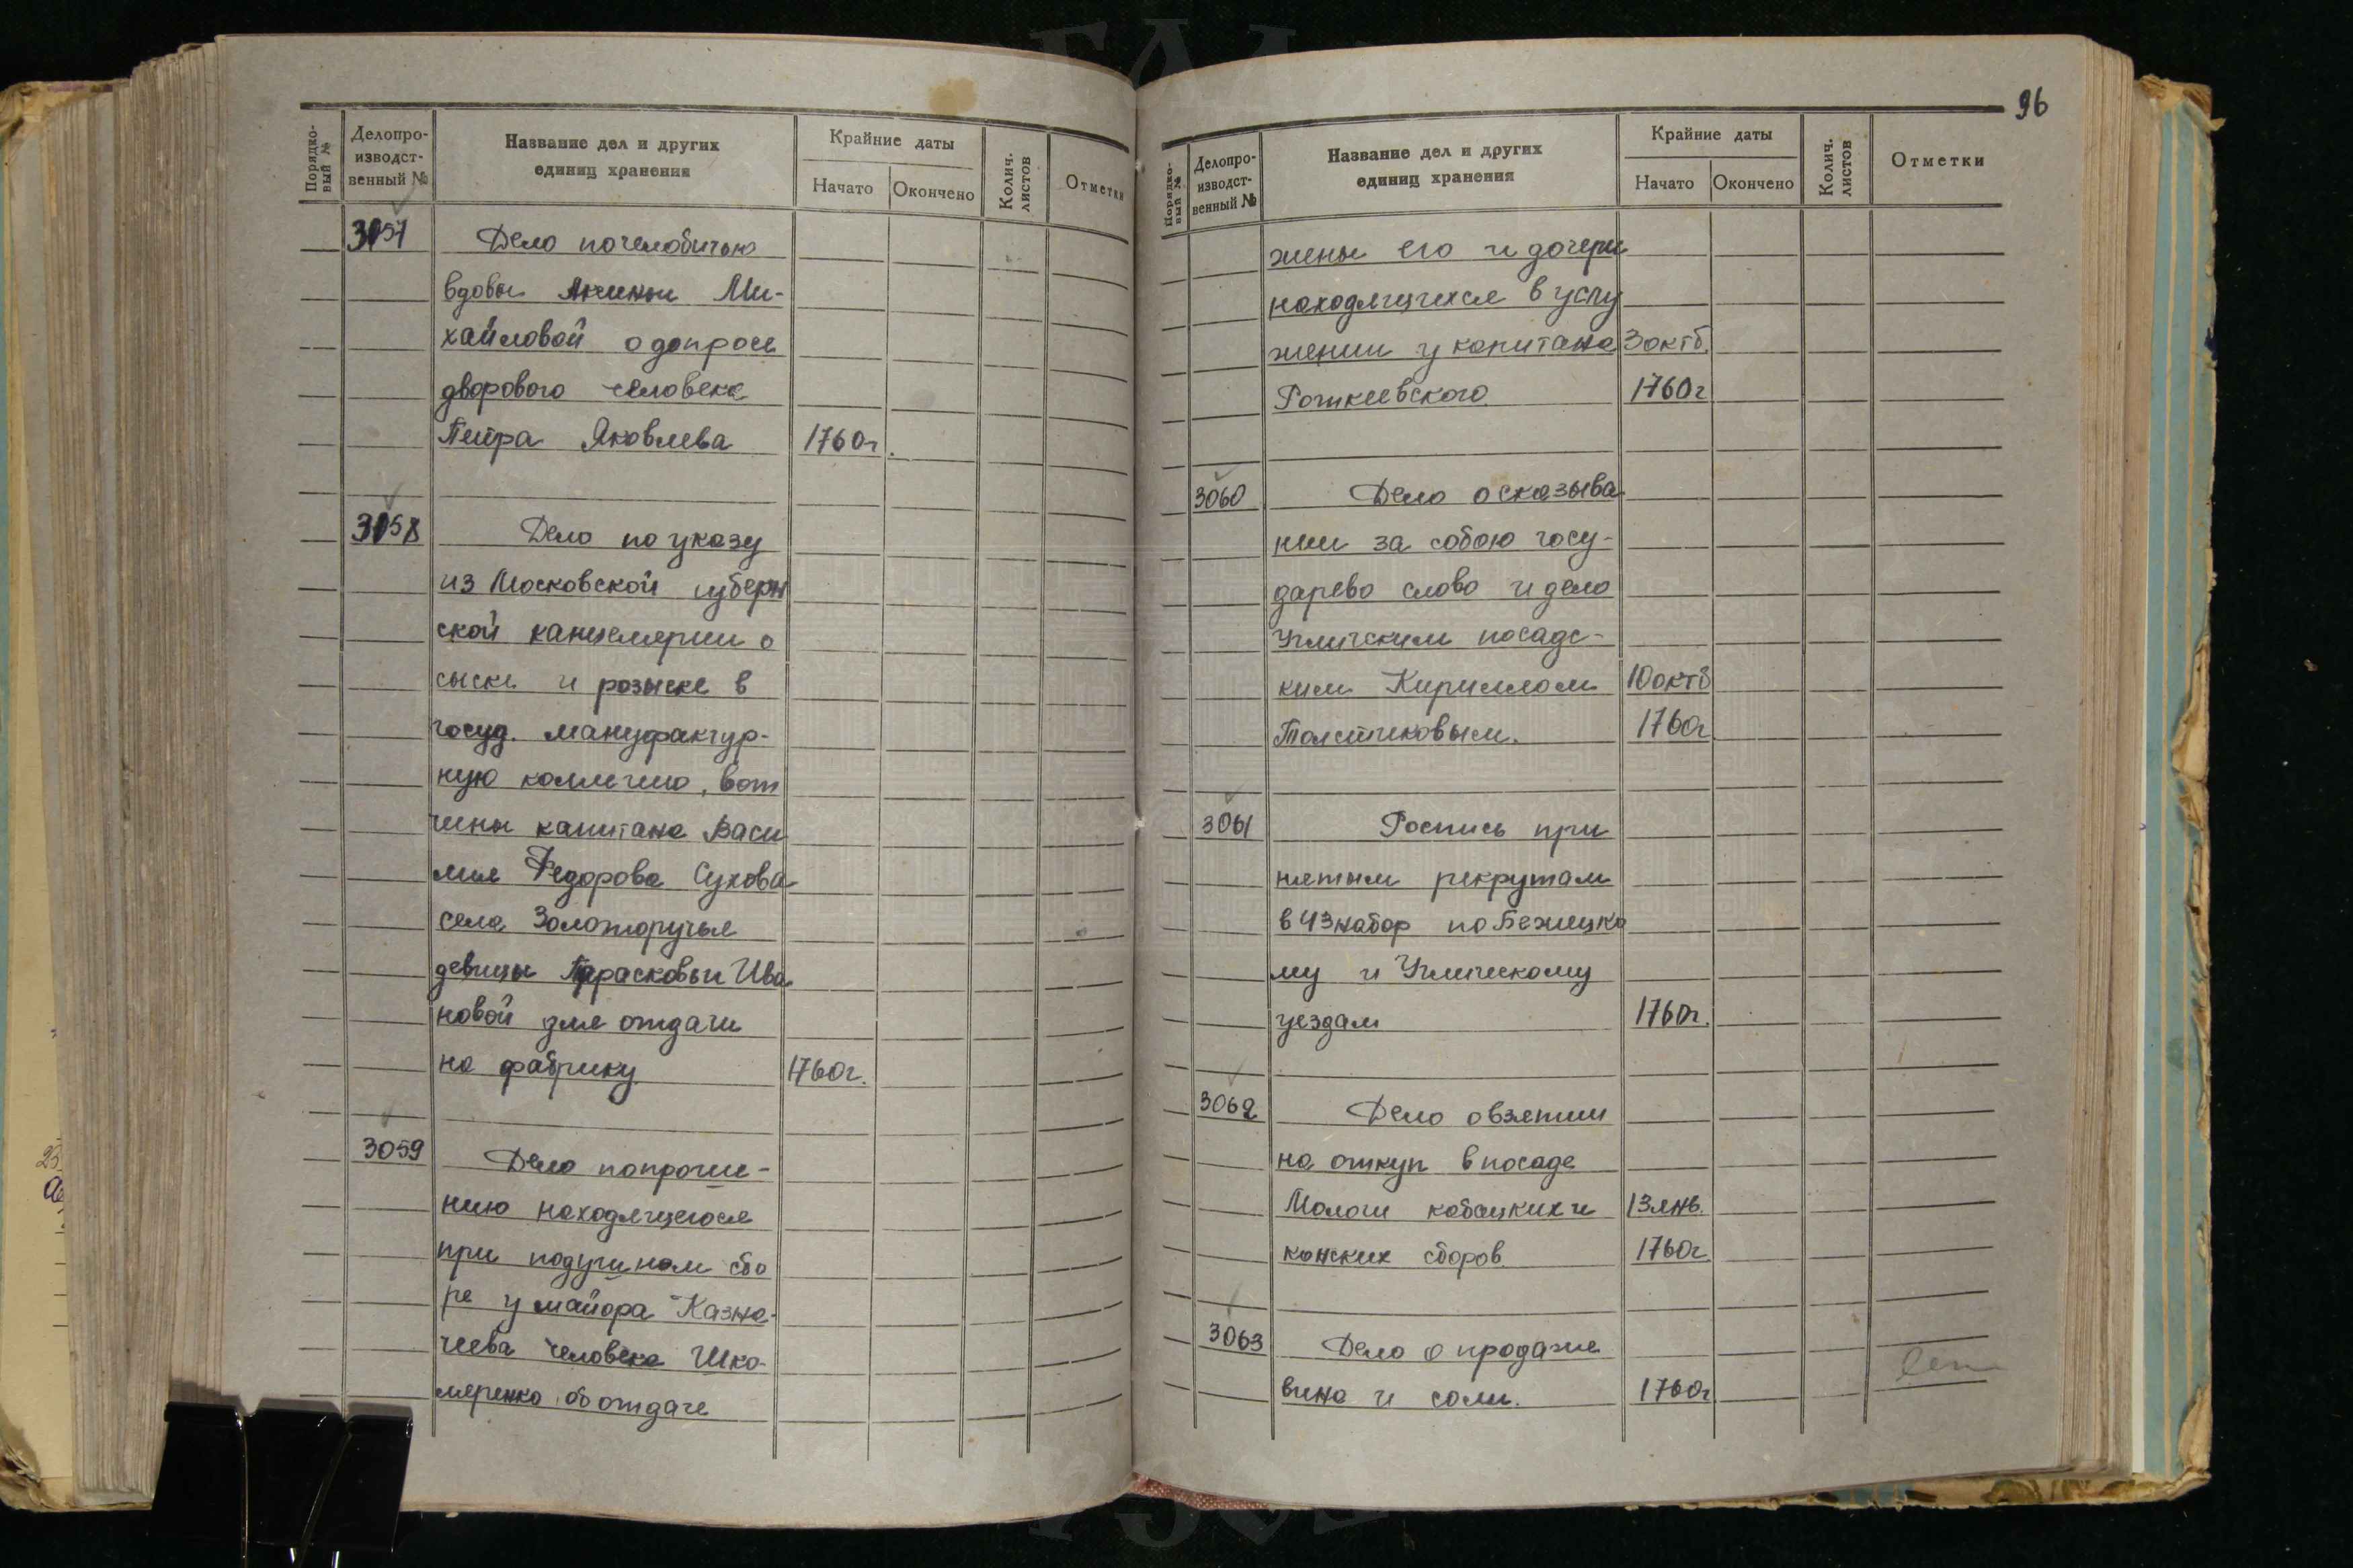 Порядко-
вый №
Делопро-
изводст-
венный №
Название дел и других
единиц хранения
Крайние даты
Начато
Окончено
Колич.
листов
Отметки
3057
Дело по челобитью
вдовы Ми-
хайловой о допросе
дворового человека
Петра Яковлева 1760г.
3058
Дело по указу
из Московской губерн
ской канцелярии о
сыске и розыске в
госуд. мануфактур-
ную коллегию, вот
чины капитана Васи
лия Федорова Сухова
села Золоторучья
девицы Парасковьи Ива
новой для отдачи
на фабрику 1760г.
3059
Дело по проше-
нию находящегося
при подушном сбо
ре у майора Казна-
чеева человека Шка
меренко об отдаче
96
Порядко-
вый №
Делопро-
изводст-
венный №
Название дел и других
единиц хранения
Крайние даты
Начато
Окончено
Колич.
листов
Отметки
жены его и дочери
находящихся в услу
жении у капитана 3 октб.
Роткеевского 1760г
3060
Дело о сказыва
нии за собою госу-
дарево слово и дело
Угличским посадс-
ким Кириллом 10 октб
Толстиковым. 1760г
3061
Роспись при
нятым рекрутам
в 43 набор по Бежецко
му и Угличскому
уездам 1760г.
3062
Дело о взятии
на откуп в посаде
Мологи кабацких и 13 янв.
конских сборов 1760г
3063
Дело о продаже
вина и соли. 1760г